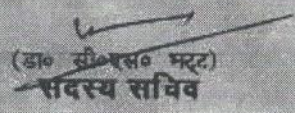 (डा० सी०एस० भट्ट)
सदस्य सचिव